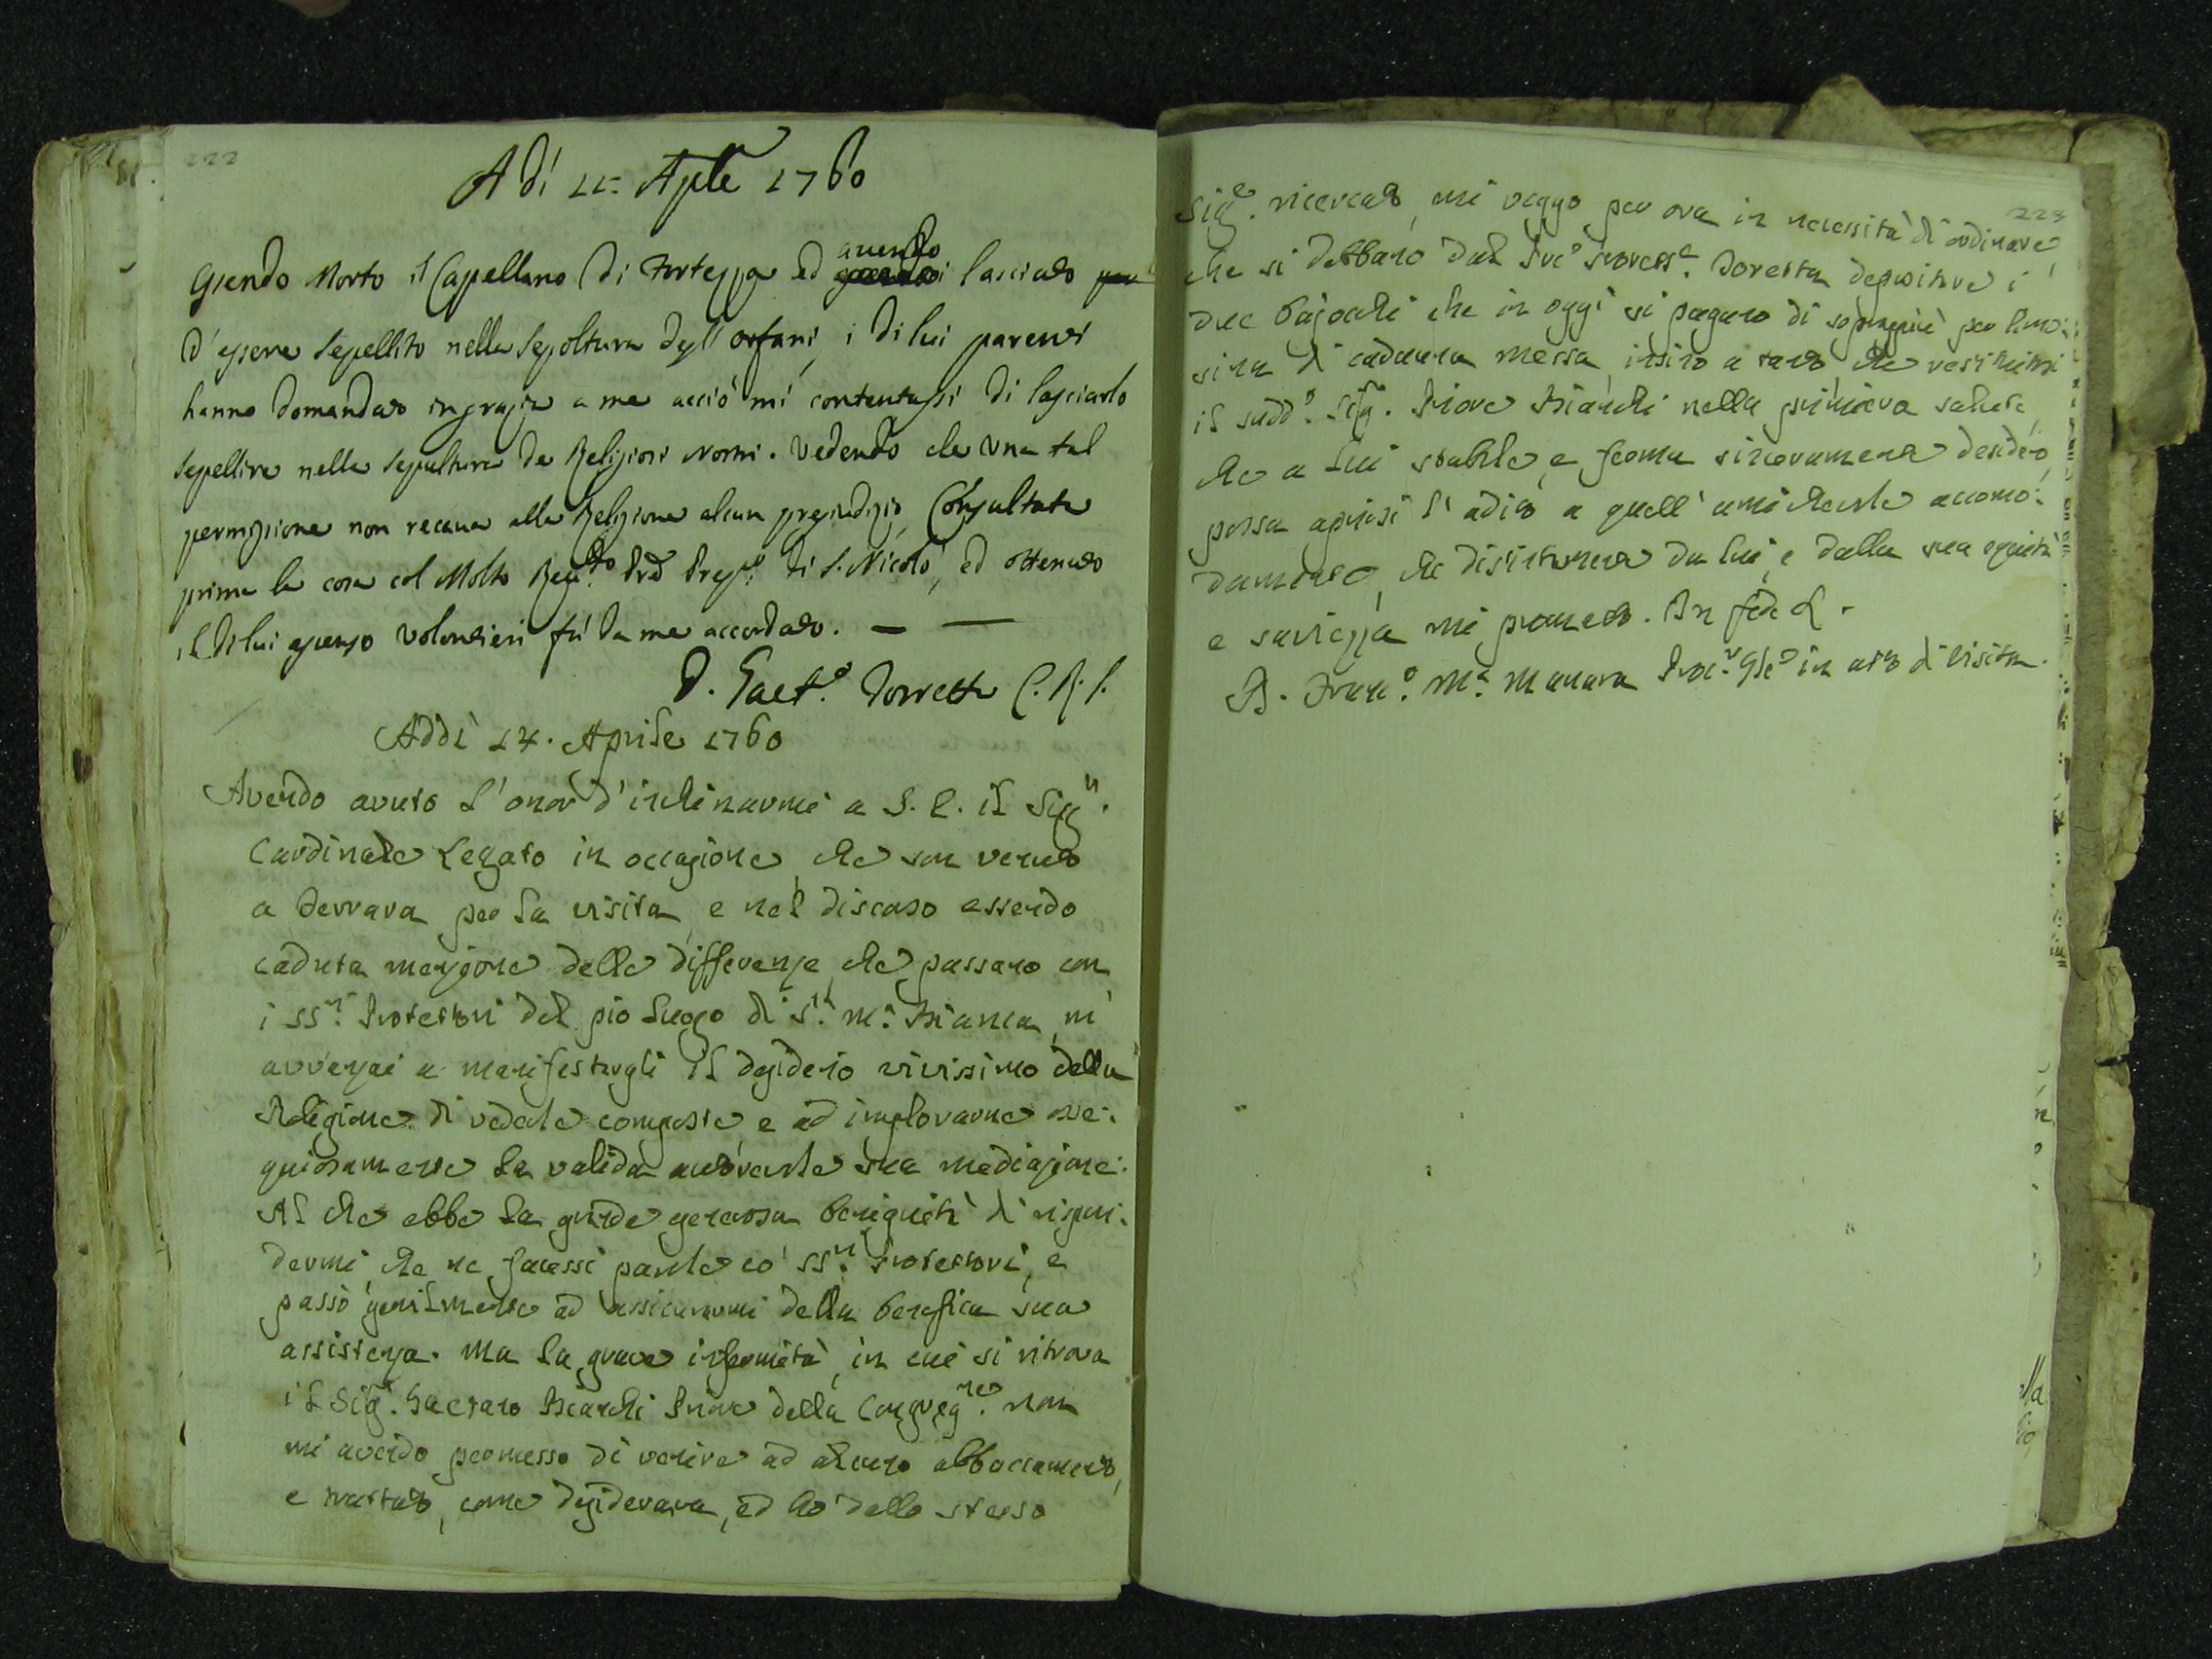 222
A dì 11: Aple 1760
Essendo Morto il Capellano di Fortezza ed avendo lasciato
d'essere sepellito nella Sepoltura degl'orfani, i di lui parenti
hanno domandato in grazia a me acciò mi contentassi di lasciarlo
sepellire nella sepultura de Religiosi Nostri. Vedendo che una tal
permissione non recava alla Religione alcun pregiudizio, Consultata
prima la cosa col Molto Revdo Prē Prepto di S. Nicolò, ed ottenuto
il di lui assenso volontieri fù da me accordato. — —
D. Gaet.º Torretti C.R.S.
Addì 14. Aprile 1760
Avendo avuto l'onor d'inchinarmi a S. E. il Sigr.
Cardinale Legato in occasione, che son venuto
a Ferrara per la visita, e nel discorso essendo
caduta menzione delle differenze, che passano con
i SSri. Protettori del pio luogo di Sta. Ma. Bianca, m'
avvanzai a manifestargli il desiderio vivissimo della
Religione di vederle composte, e ad implorarne osse-
quiosamente la valida autorevole sua mediazione.
Al che ebbe la grande generosa benignità di rispon-
dermi che ne facessi parola co' SSri. Protettori, e
passò gentilmente ad assicurarmi della benefica sua
assistenza. Ma la grave infermità, in cui si ritrova
il Sig. Gaetano Bianchi Priore della Congregne. non
mi avendo permesso di venire ad alcuno abboccamento,
e trattato, come desiderava, ed ho dello stesso
223
Sige. ricercato, mi veggo per ora in necessità di ordinare,
che si debbano dal Pre
due bajocchi che in oggi si pagano di soprapiù per limo-
sina di cadauna messa, insino a tanto che restituitosi
il sudd.º Sig. Priore Bianchi nella primiera salute,
che a lui stabile, e ferma sinceramente desidero,
possa aprirsi l'adito a quell'amichevole accomo-
damento, che da lui, e dalla sua equità
e saviezza mi prometto. In fede &.
D. Franc.º Ma. Manara Proc.r Gle in atto di visita.